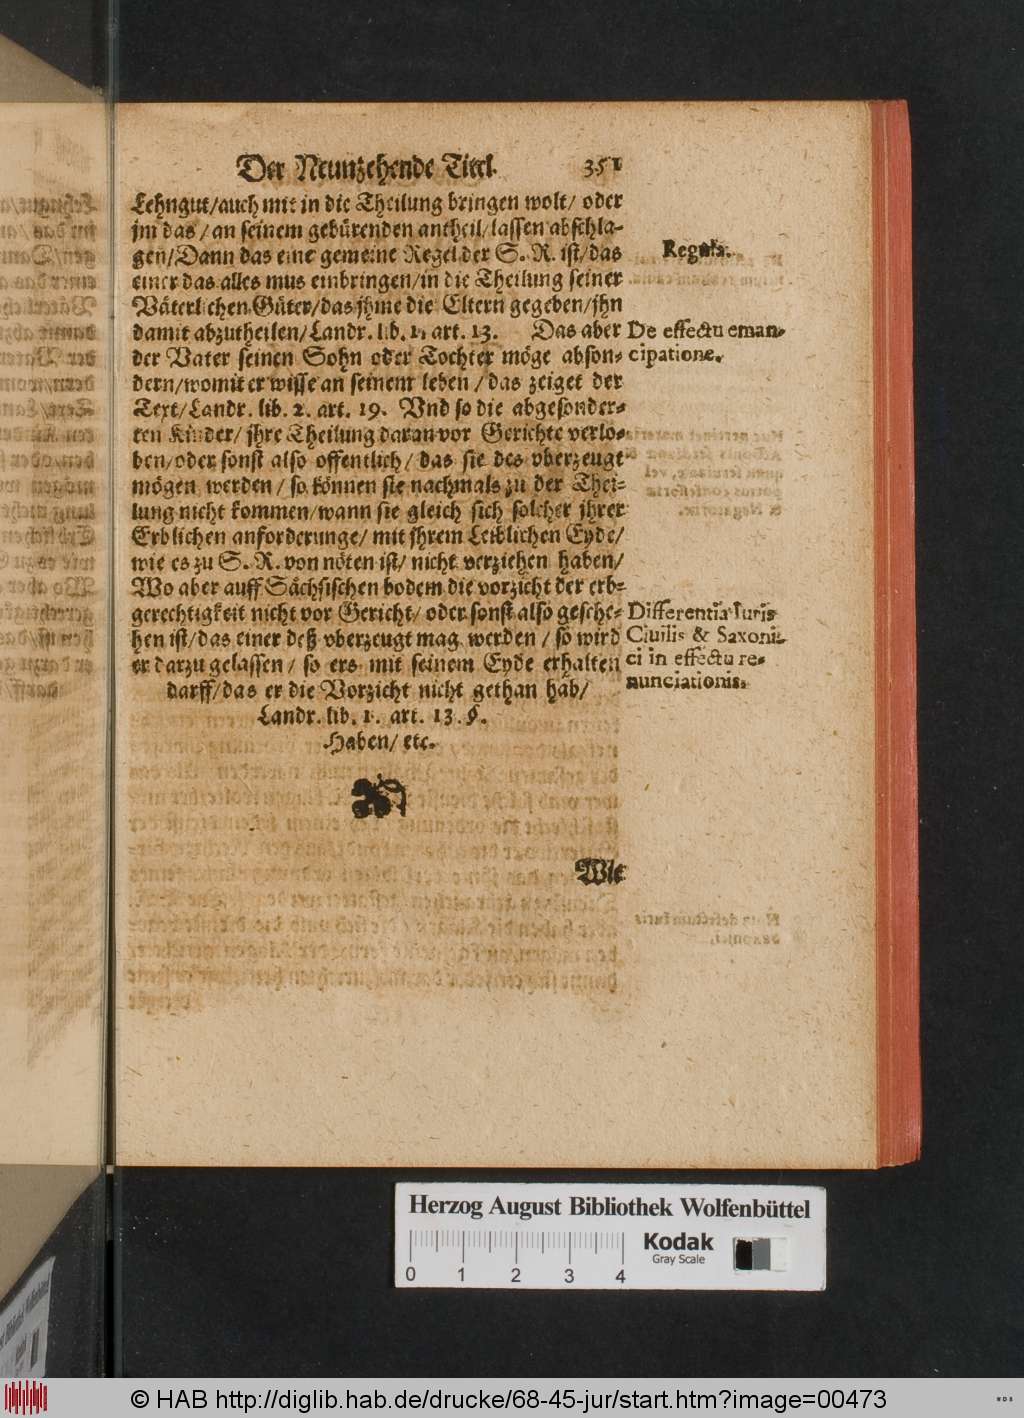 Der Neunzehende Titel. 351
Lehngut/auch mit in die Theilung bringen wolt/ oder
jm das/an seinem gebürenden antheil/lassen abschla-
gen/Dann das eine gemeine Regel der S. R. ist/das
einer das alles mus einbringen/in die Theilung seiner
Väterlichen Güter/das jhme die Eltern gegeben/jhn
damit abzutheilen/Landr. lib. 1. art. 13. Das aber
der Vater seinen Sohn oder Tochter möge abson-
dern/womit er wisse an seinem leben/das zeiget der
Text/Landr. lib. 2. art. 19. Vnd so die abgesonder-
ten Kinder/jhre Theilung daran vor Gerichte verlo-
ben/oder sonst also offentlich/das sie des vberzeugt
mögen werden/so können sie nachmals zu der Thei-
lung nicht kommen/wann sie gleich sich solcher jhrer
Erblichen anforderunge/mit jhrem Leiblichen Eyde/
wie es zu S. R. von nöten ist/nicht verziehen haben/
Wo aber auff Sächsischen bodem die vorzicht der erb-
gerechtigkeit nicht vor Gericht/oder sonst also gesche-
hen ist/das einer deß vberzeugt mag werden/so wird
er darzu gelassen/so ers mit seinem Eyde erhalten
darff/das er die Vorzicht nicht gethan hab/
Landr. lib. 1. art. 13. §.
Haben/etc.
Wie
Regula.
De effectu eman-
cipatione.
Differentia Iuris
Ciuilis & Saxoni-
ci in effectu re-
nunciationis.
Herzog August Bibliothek Wolfenbüttel
Kodak
Gray Scale
0 1 2 3 4
© HAB http://diglib.hab.de/drucke/68-45-jur/start.htm?image=00473